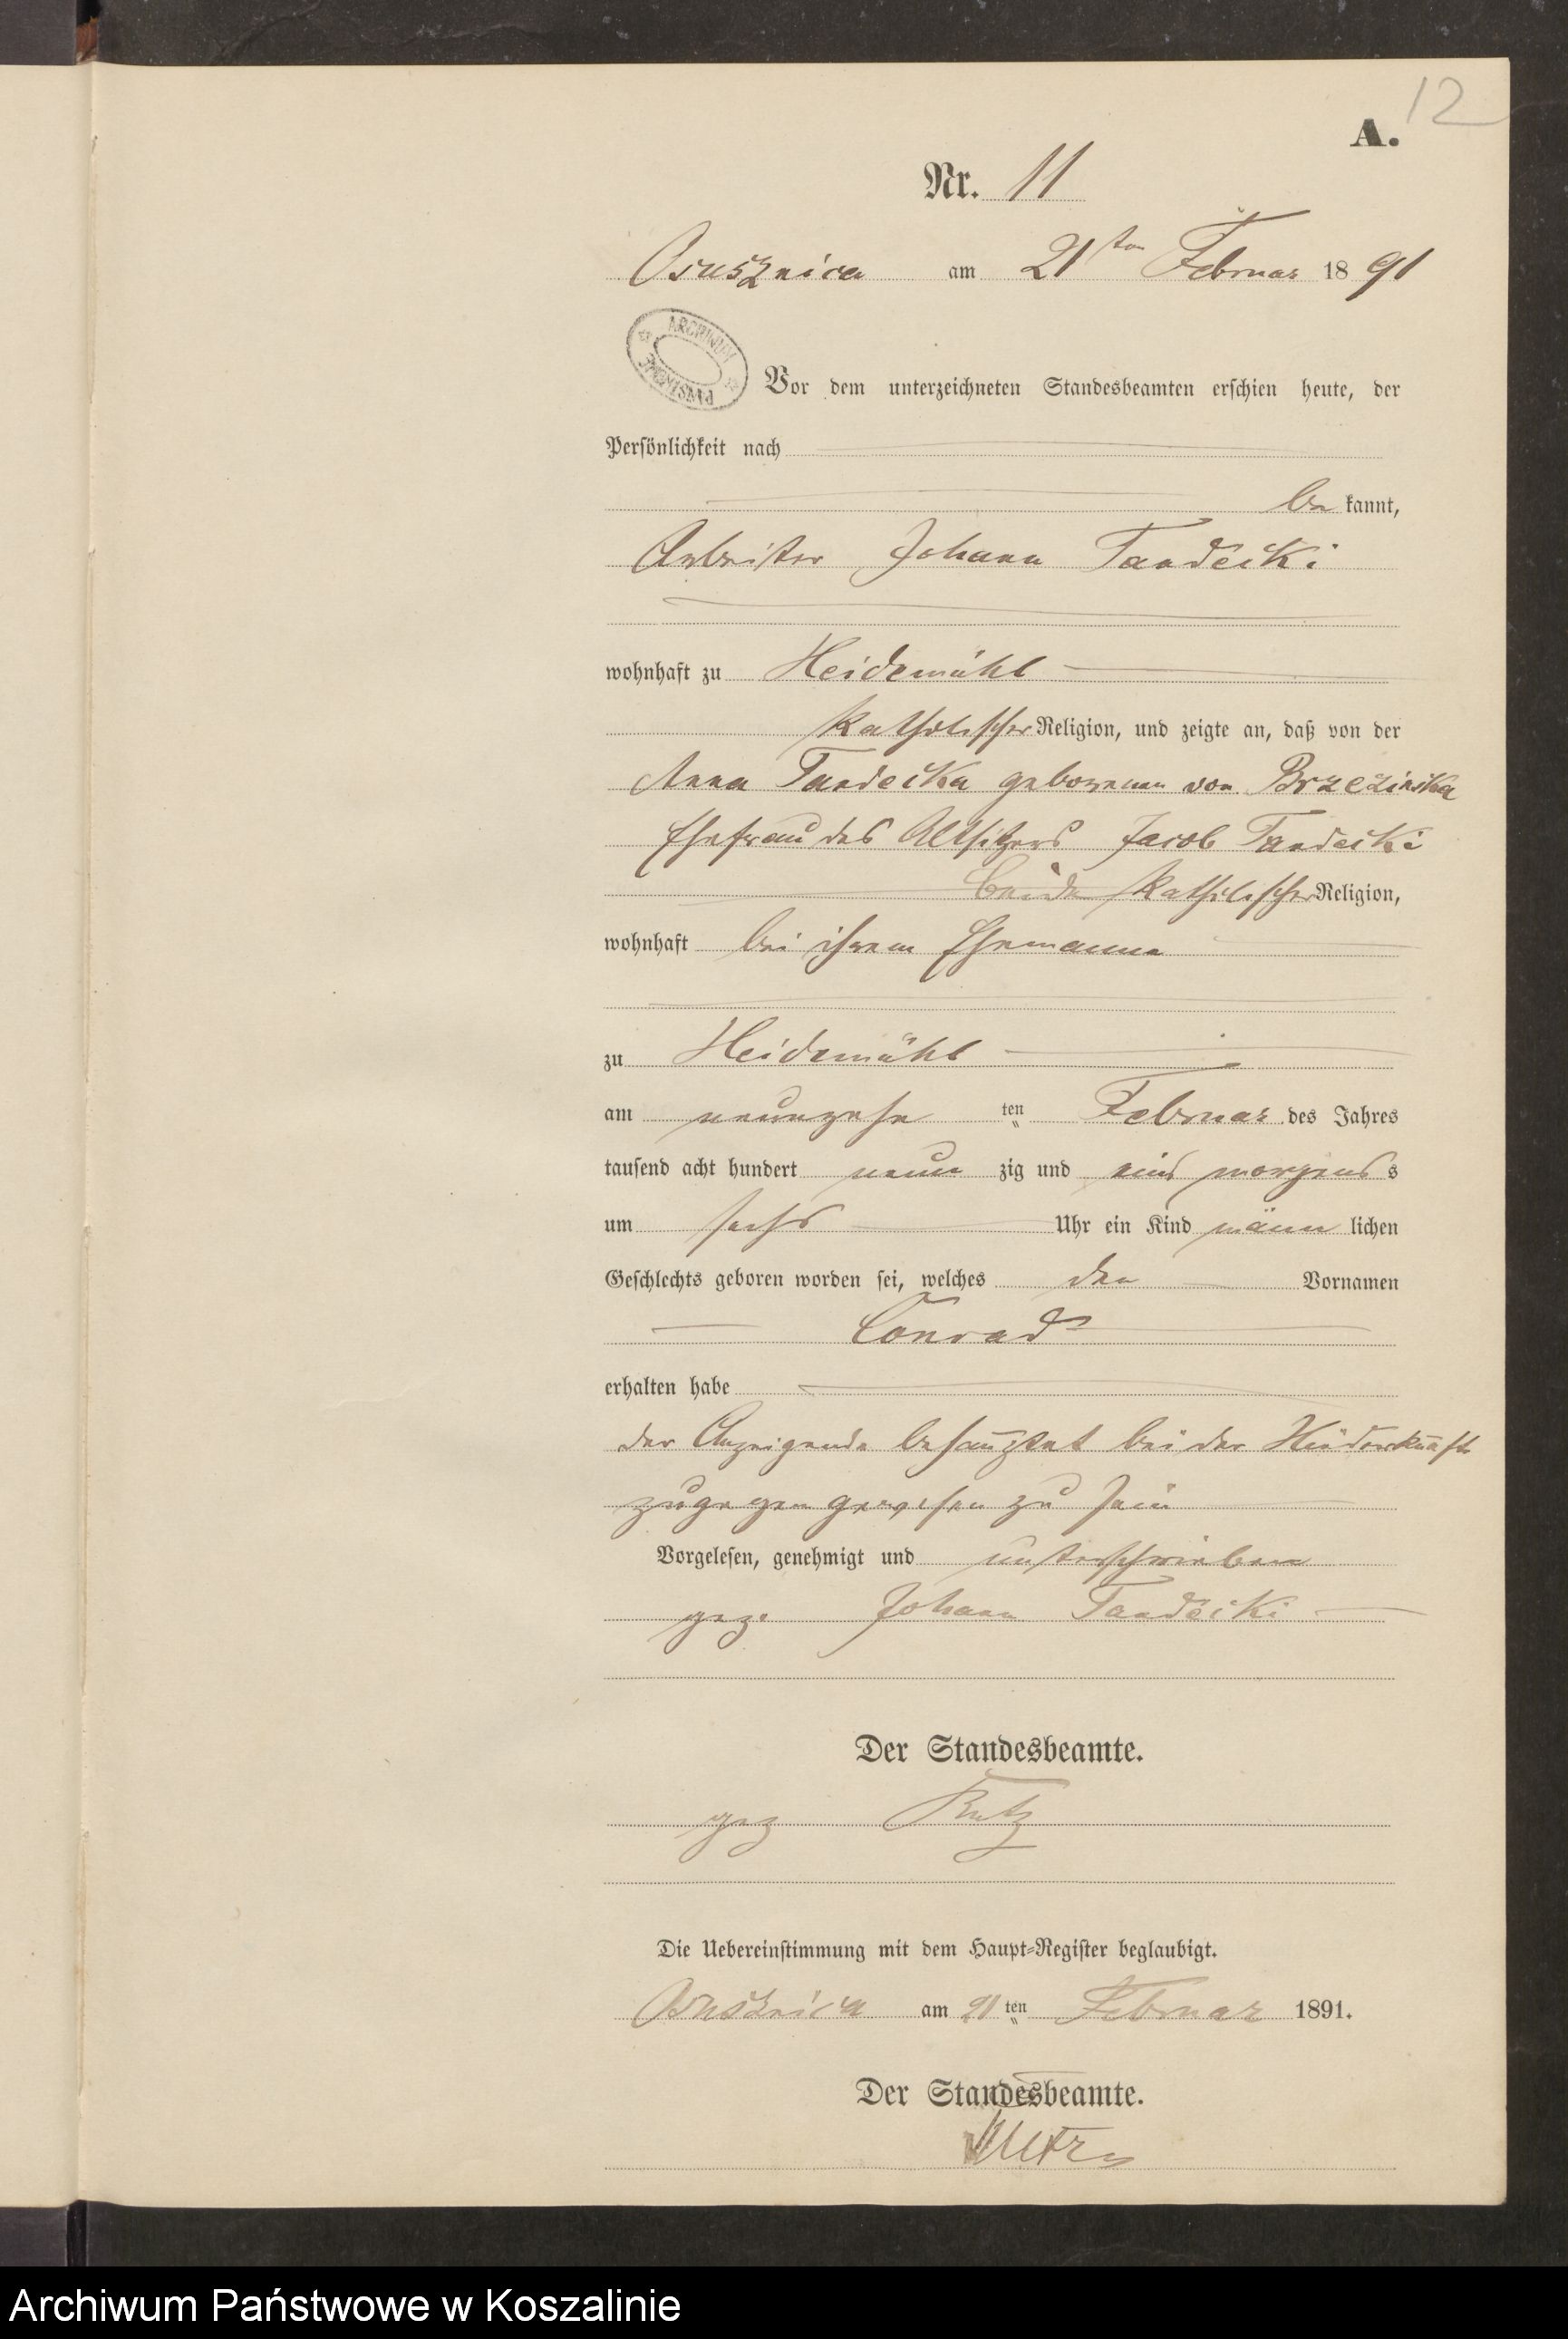 12
A.
Nr. 11
Osusznica am 21ten Februar 1891
ARCHIWUM PAŃSTWOWE
Vor dem unterzeichneten Standesbeamten erschien heute, der
Persönlichkeit nach
be kannt,
Arbeiter Johann Tandecki
wohnhaft zu Heidemühl
katholischer Religion, und zeigte an, daß von der
Anna Tandecka geborenen von Brzezinska
Ehefrau des Altsitzers Jacob Tandecki
beide katholischer Religion,
wohnhaft bei ihrem Ehemanne
zu Heidemühl
am neunzehn ten Februar des Jahres
tausend acht hundert neun zig und eins morgens s
um sechs Uhr ein Kind männ lichen
Geschlechts geboren worden sei, welches den Vornamen
Conrad
erhalten habe
der Anzeigende behauptet bei der Niederkunft
zugegen gewesen zu sein
Vorgelesen, genehmigt und unterschrieben
gez. Johann Tandecki
Der Standesbeamte.
gez
Die Uebereinstimmung mit dem Haupt-Register beglaubigt.
Osusznica am 21 ten Februar 1891.
Der Standesbeamte.
Archiwum Państwowe w Koszalinie